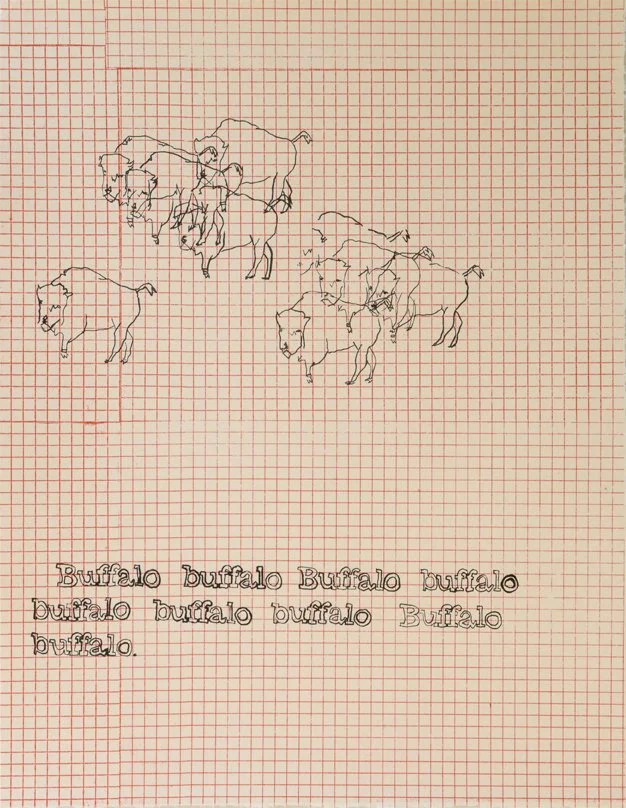 Buffalo buffalo Buffalo buffalo
buffalo buffalo buffalo Buffalo
buffalo.